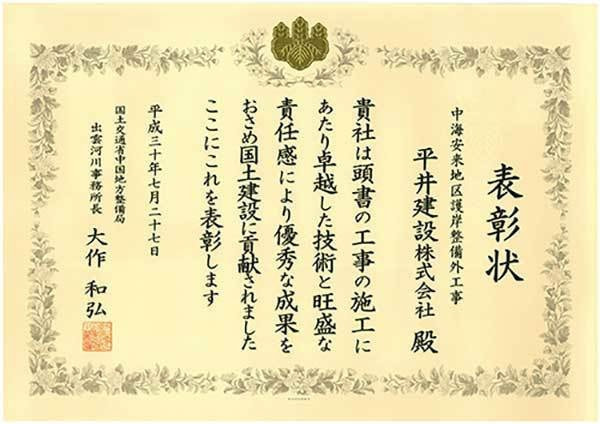 表彰状
中海安来地区護岸整備外工事
平井建設株式会社 殿
貴社は頭書の工事の施工に
あたり卓越した技術と旺盛な
責任感により優秀な成果を
おさめ国土建設に貢献されました
ここにこれを表彰します
平成三十年七月二十七日
国土交通省中国地方整備局
出雲河川事務所長 大作和弘